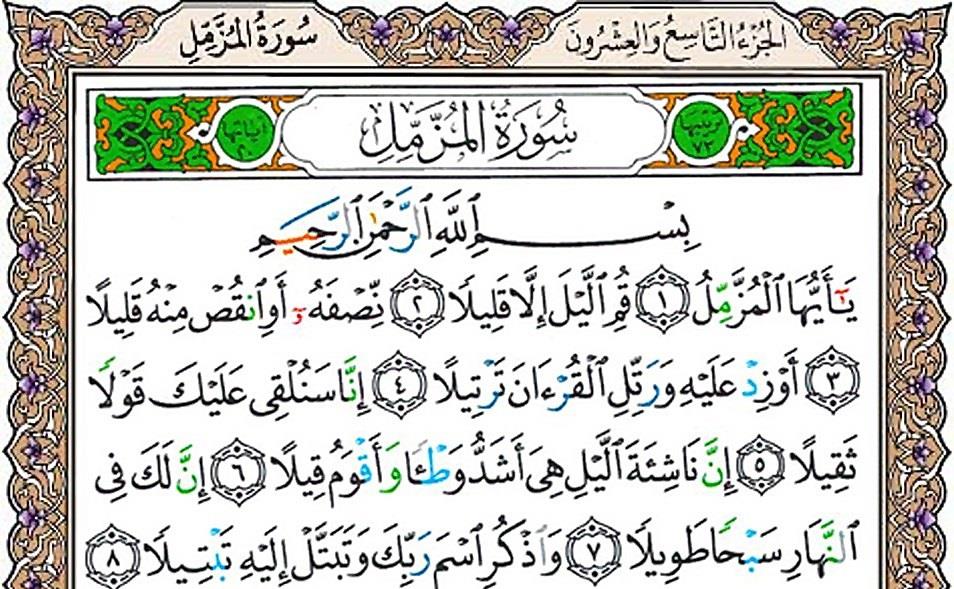 الجزء التاسع والعشرون
سورة المزمل
ترتيبها ٧٣
سورة المزمل
آياتها ٢٠
بِسْمِ ٱللَّهِ ٱلرَّحْمَٰنِ ٱلرَّحِيمِ
يَٰٓأَيُّهَا ٱلْمُزَّمِّلُ ١ قُمِ ٱلَّيْلَ إِلَّا قَلِيلًا ٢ نِّصْفَهُۥٓ أَوِ ٱنقُصْ مِنْهُ قَلِيلًا
٣ أَوْ زِدْ عَلَيْهِ وَرَتِّلِ ٱلْقُرْءَانَ تَرْتِيلًا ٤ إِنَّا سَنُلْقِى عَلَيْكَ قَوْلًا
ثَقِيلًا ٥ إِنَّ نَاشِئَةَ ٱلَّيْلِ هِىَ أَشَدُّ وَطْـًٔا وَأَقْوَمُ قِيلًا ٦ إِنَّ لَكَ فِى
ٱلنَّهَارِ سَبْحًا طَوِيلًا ٧ وَٱذْكُرِ ٱسْمَ رَبِّكَ وَتَبَتَّلْ إِلَيْهِ تَبْتِيلًا ٨